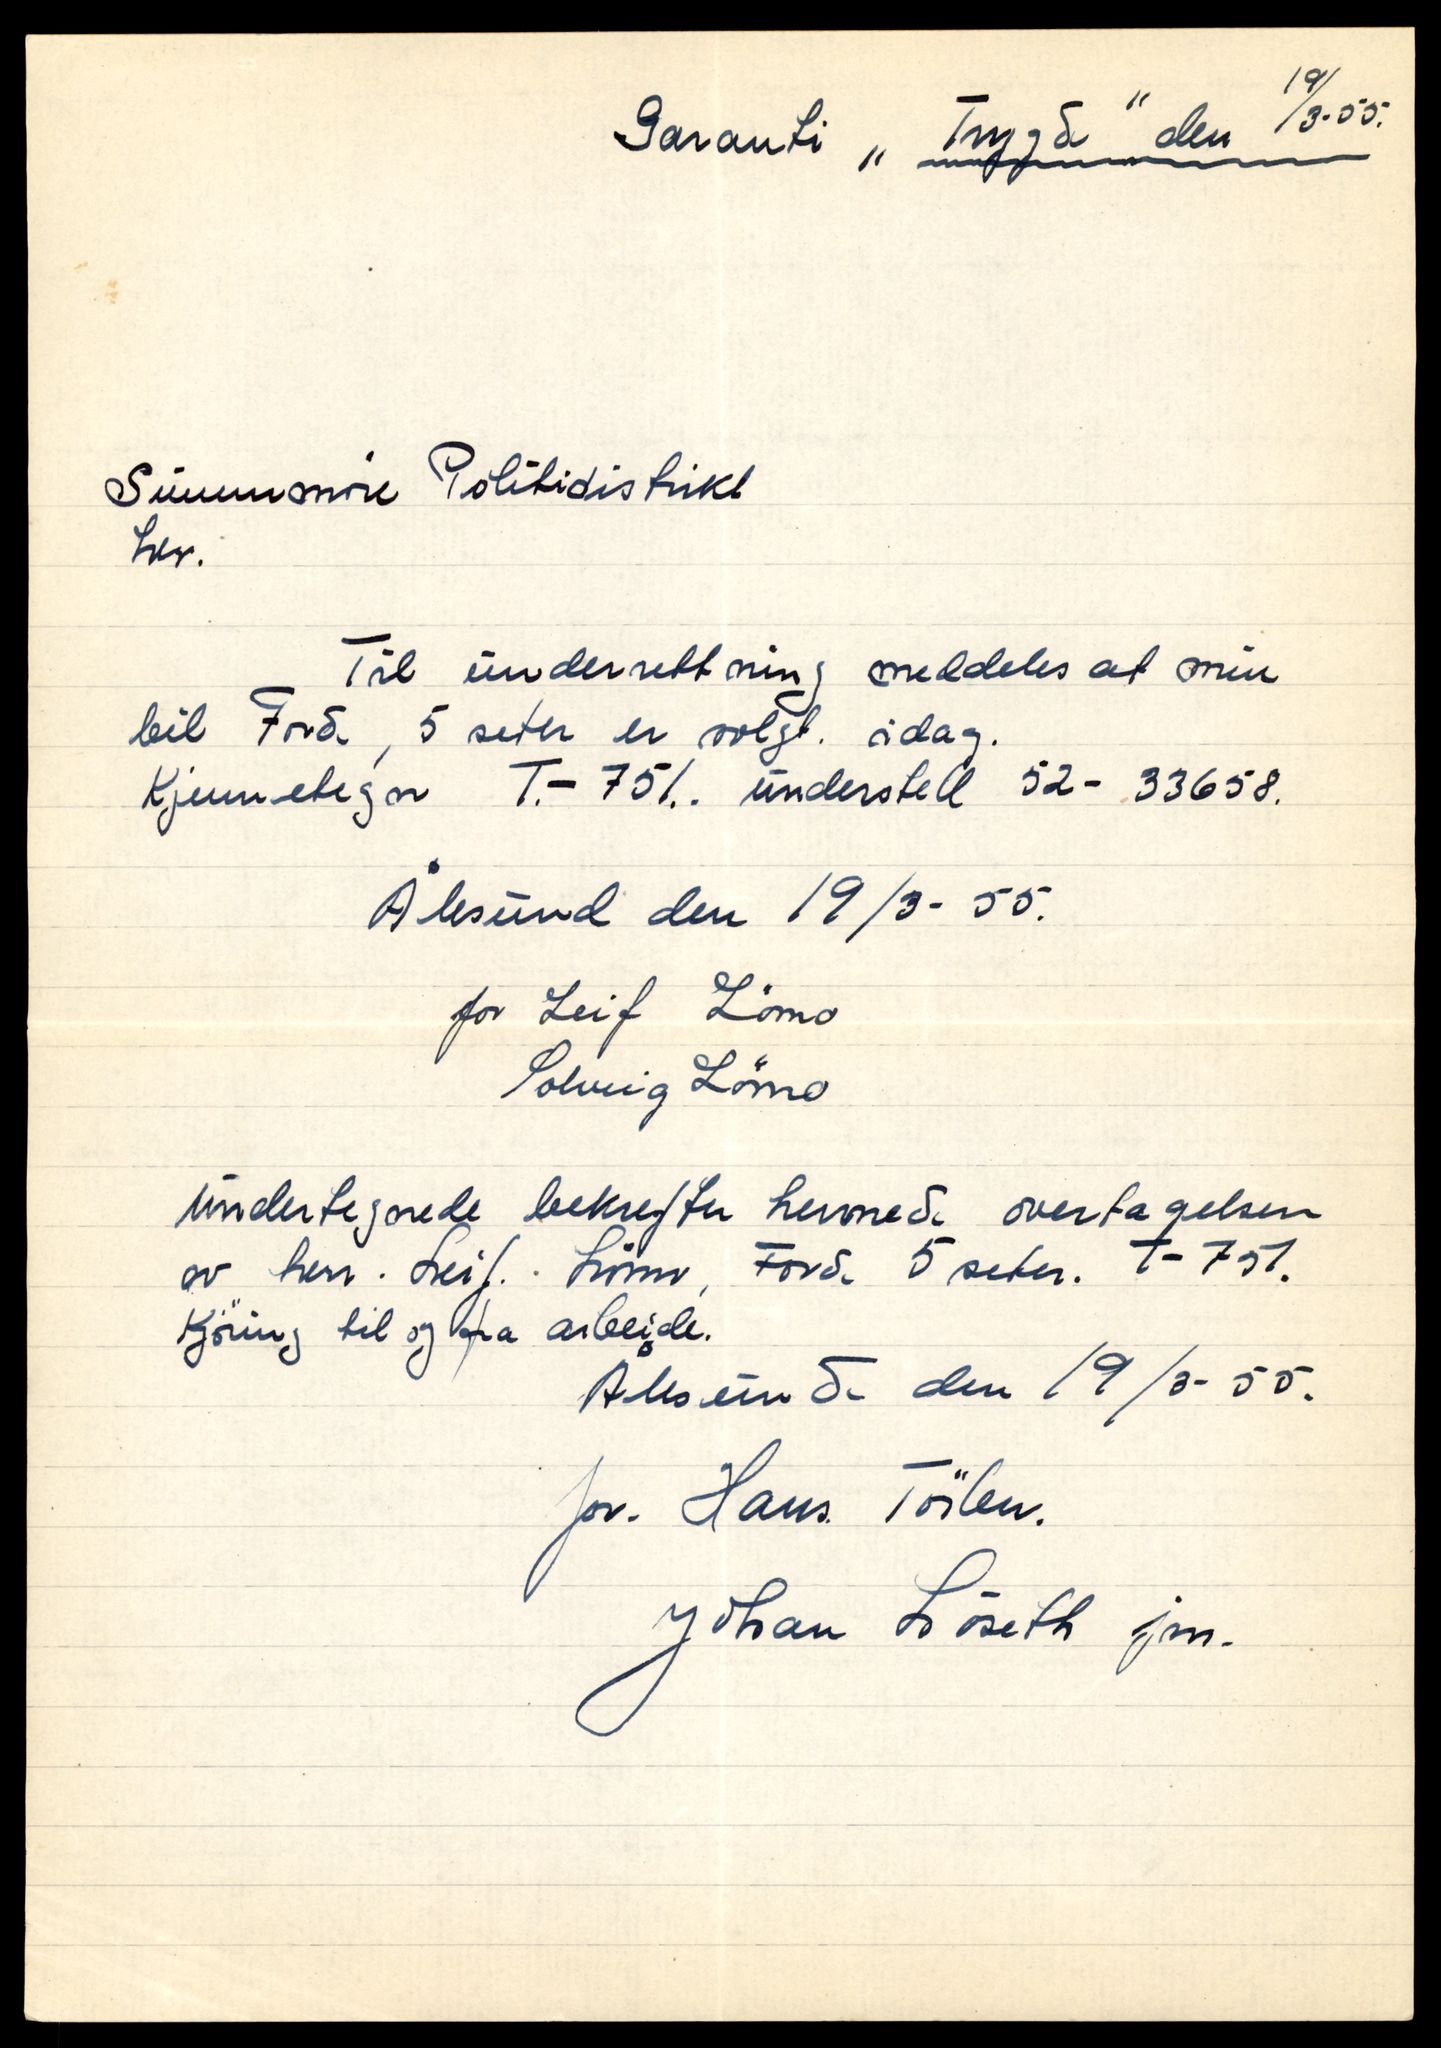 Garanti „Trygd" den 19/3-55.
Sunnmöre Politidistrikt
her.
Til underrettning meddeles at min
bil Ford, 5 seter er solgt. idag.
Kjennetegn T.- 751.. understell 52- 33658.
Ålesund den 19/3- 55.
for Leif Lömo
Solveig Lömo
Undertegnede bekrefter hermed overtagelsen
av herr. Leif. Lömo, Ford 5 seter. T- 751.
Kjöring til og fra arbeide.
Ålesund den 19/3- 55.
for. Hans
Johan Löseth jnr.